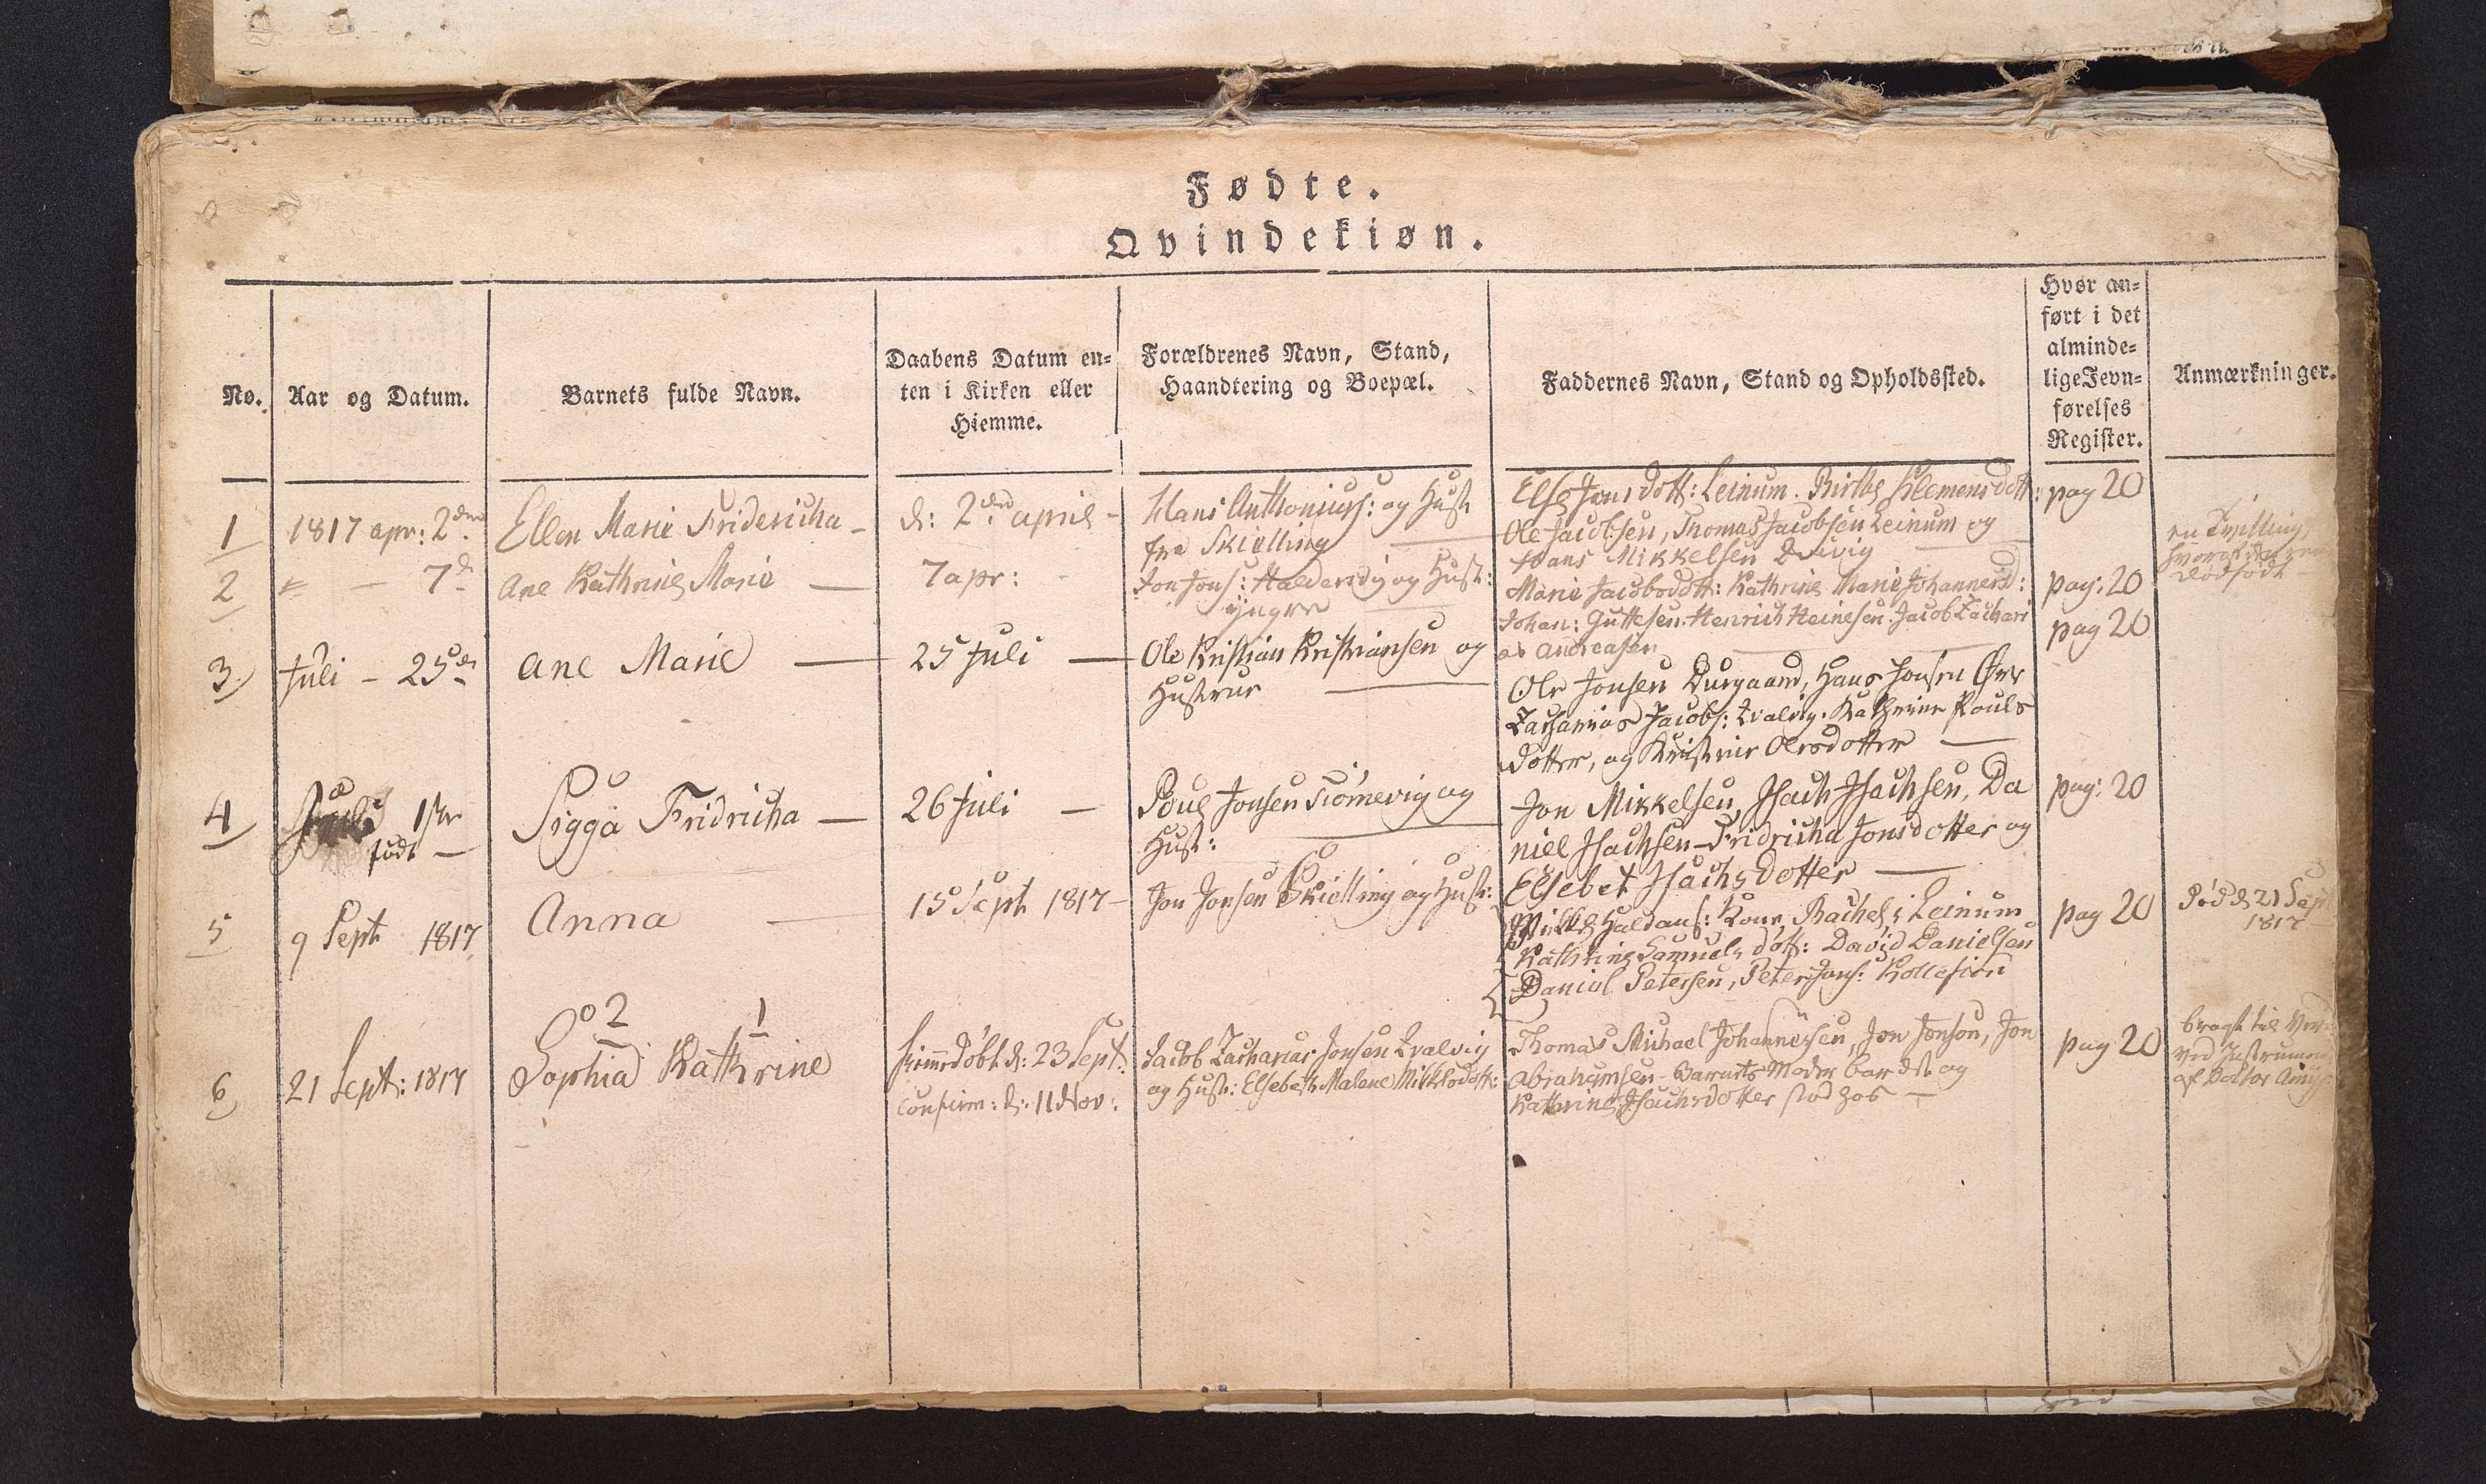 Fødte.
Qvindekiøn.
No.
Aar og Datum.
Barnets fulde Navn.
Daabens Datum en-
ten i Kirken eller
Hiemme.
Forældrenes Navn, Stand,
Haandtering og Boepæl.
Faddernes Navn, Stand og Opholdssted.
Hvor an-
ført i det
alminde-
lige Jevn-
førelses
Register.
Anmærkninger.
1
1817 apr: 2den
Ellen Marie Fridericha -
d: 2den april -
Hans Anthoniuss: og Hust
fra Skielling
Else Jons dott: Leinum. Birthe Klemensdott:
Ole Jacobsen, Thomas Jacobsen Leinum og
Hans Mikkelsen
pag 20
en Tvilling,
hvoraf den ene
dødfødt
2
" - 7de
Ane Kathrine Marie —
7 apr: -
Jon Jons: Haldersvig og Hust:
yngre
Marie Jacobsdott: Kathrine Marie Johannesd:
Johan: Guttesen. Henrich Heinesen. Jacob Zachari
as Andreasen
pag: 20
3
Juli - 25de
Ane Marie —
25 Juli —
Ole Kristian Kristiansen og
Hustrue
Ole Jonsen Dusgaard, Hans Jonsen Øre
Zacharias Jacobs: Qvalvig. Kathrine Pouls
dotter, og Kristine Olesdotter —
pag 20
4
Juli 1ste
født —
Sigga Fridricha —
26 Juli —
Poul Jonsen Siömevig og
Hust:
Jon Mikkelsen, Isach Isachsen, Da
niel Isachsen - Fridricha Jonsdotter og
Elsebet Isachsdotter —
pag: 20
5
9 Sept 1817
Anna —
15 Sept 1817 -
Jon Jonsen Skielling og Hust:
Mikkel Haldans: Kone Rachel i Leinum
Kathrine Samuels dott: David Danielsen
Daniel Petersen, Peter Jons: Kollefiord
pag 20
død d 21 Sept
1817
6
21 Sept: 1817
2 1
Sophia Kathrine
hiemedøbt d: 23 Sept.
confirm: d: 11 Nov:
Jacob Zacharias Jonsen Qvalvig
og Hust: Elsebeth Malene Mikkelsdott:
Thomas Michael Johannesen, Jon Jonson, Jon
Abrahamsen - Barnets Moder bar det og
Kathrine Isachsdotter stod hos —
pag 20
bragt til Ver
ved Instrument
af Doktor